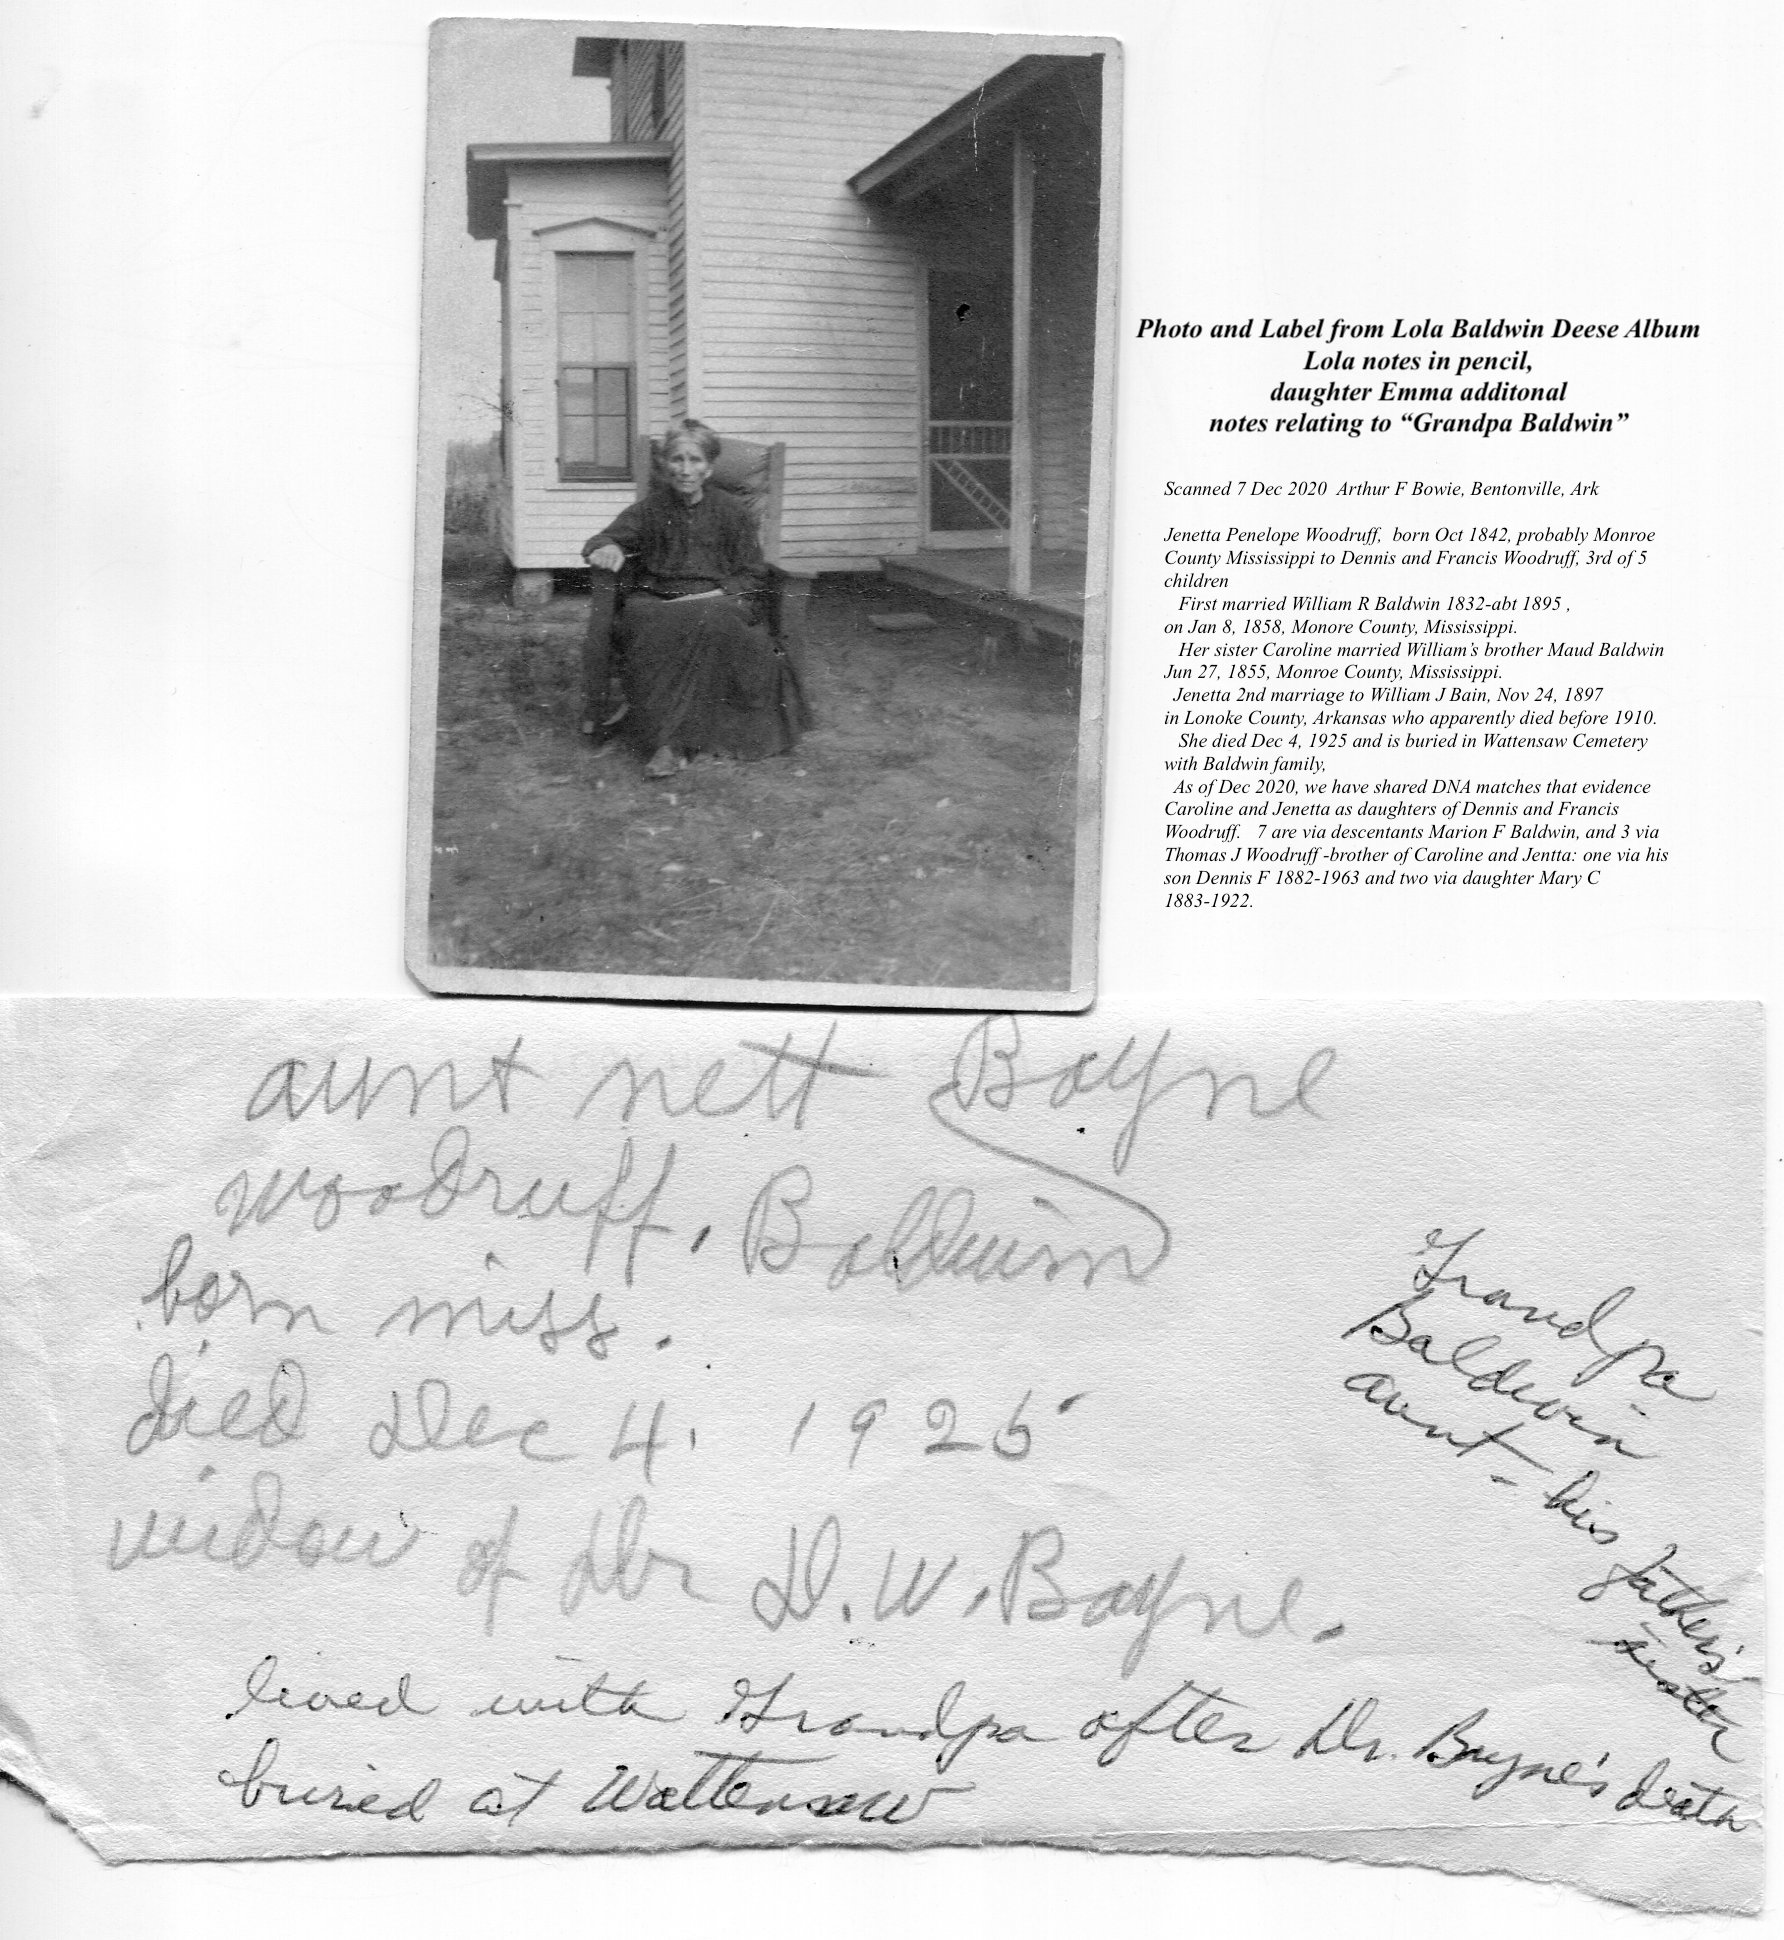 Photo and Label from Lola Baldwin Deese Album
Lola notes in pencil,
daughter Emma additonal
notes relating to “Grandpa Baldwin”
Scanned 7 Dec 2020 Arthur F Bowie, Bentonville, Ark
Jenetta Penelope Woodruff, born Oct 1842, probably Monroe
County Mississippi to Dennis and Francis Woodruff, 3rd of 5
children
First married William R Baldwin 1832-abt 1895 ,
on Jan 8, 1858, Monore County, Mississippi.
Her sister Caroline married William's brother Maud Baldwin
Jun 27, 1855, Monroe County, Mississippi.
Jenetta 2nd marriage to William J Bain, Nov 24, 1897
in Lonoke County, Arkansas who apparently died before 1910.
She died Dec 4, 1925 and is buried in Wattensaw Cemetery
with Baldwin family,
As of Dec 2020, we have shared DNA matches that evidence
Caroline and Jenetta as daughters of Dennis and Francis
Woodruff. 7 are via descentants Marion F Baldwin, and 3 via
Thomas J Woodruff -brother of Caroline and Jentta: one via his
son Dennis F 1882-1963 and two via daughter Mary C
1883-1922.
aunt nett Bayne
Woodruff, Baldwin
born miss.
died Dec 4, 1925
widow of Dr D. W. Bayne.
Grandpa
Baldwin
aunt - his father's
sister
lived with Grandpa after Dr. Bayne's death
buried at Wattensaw